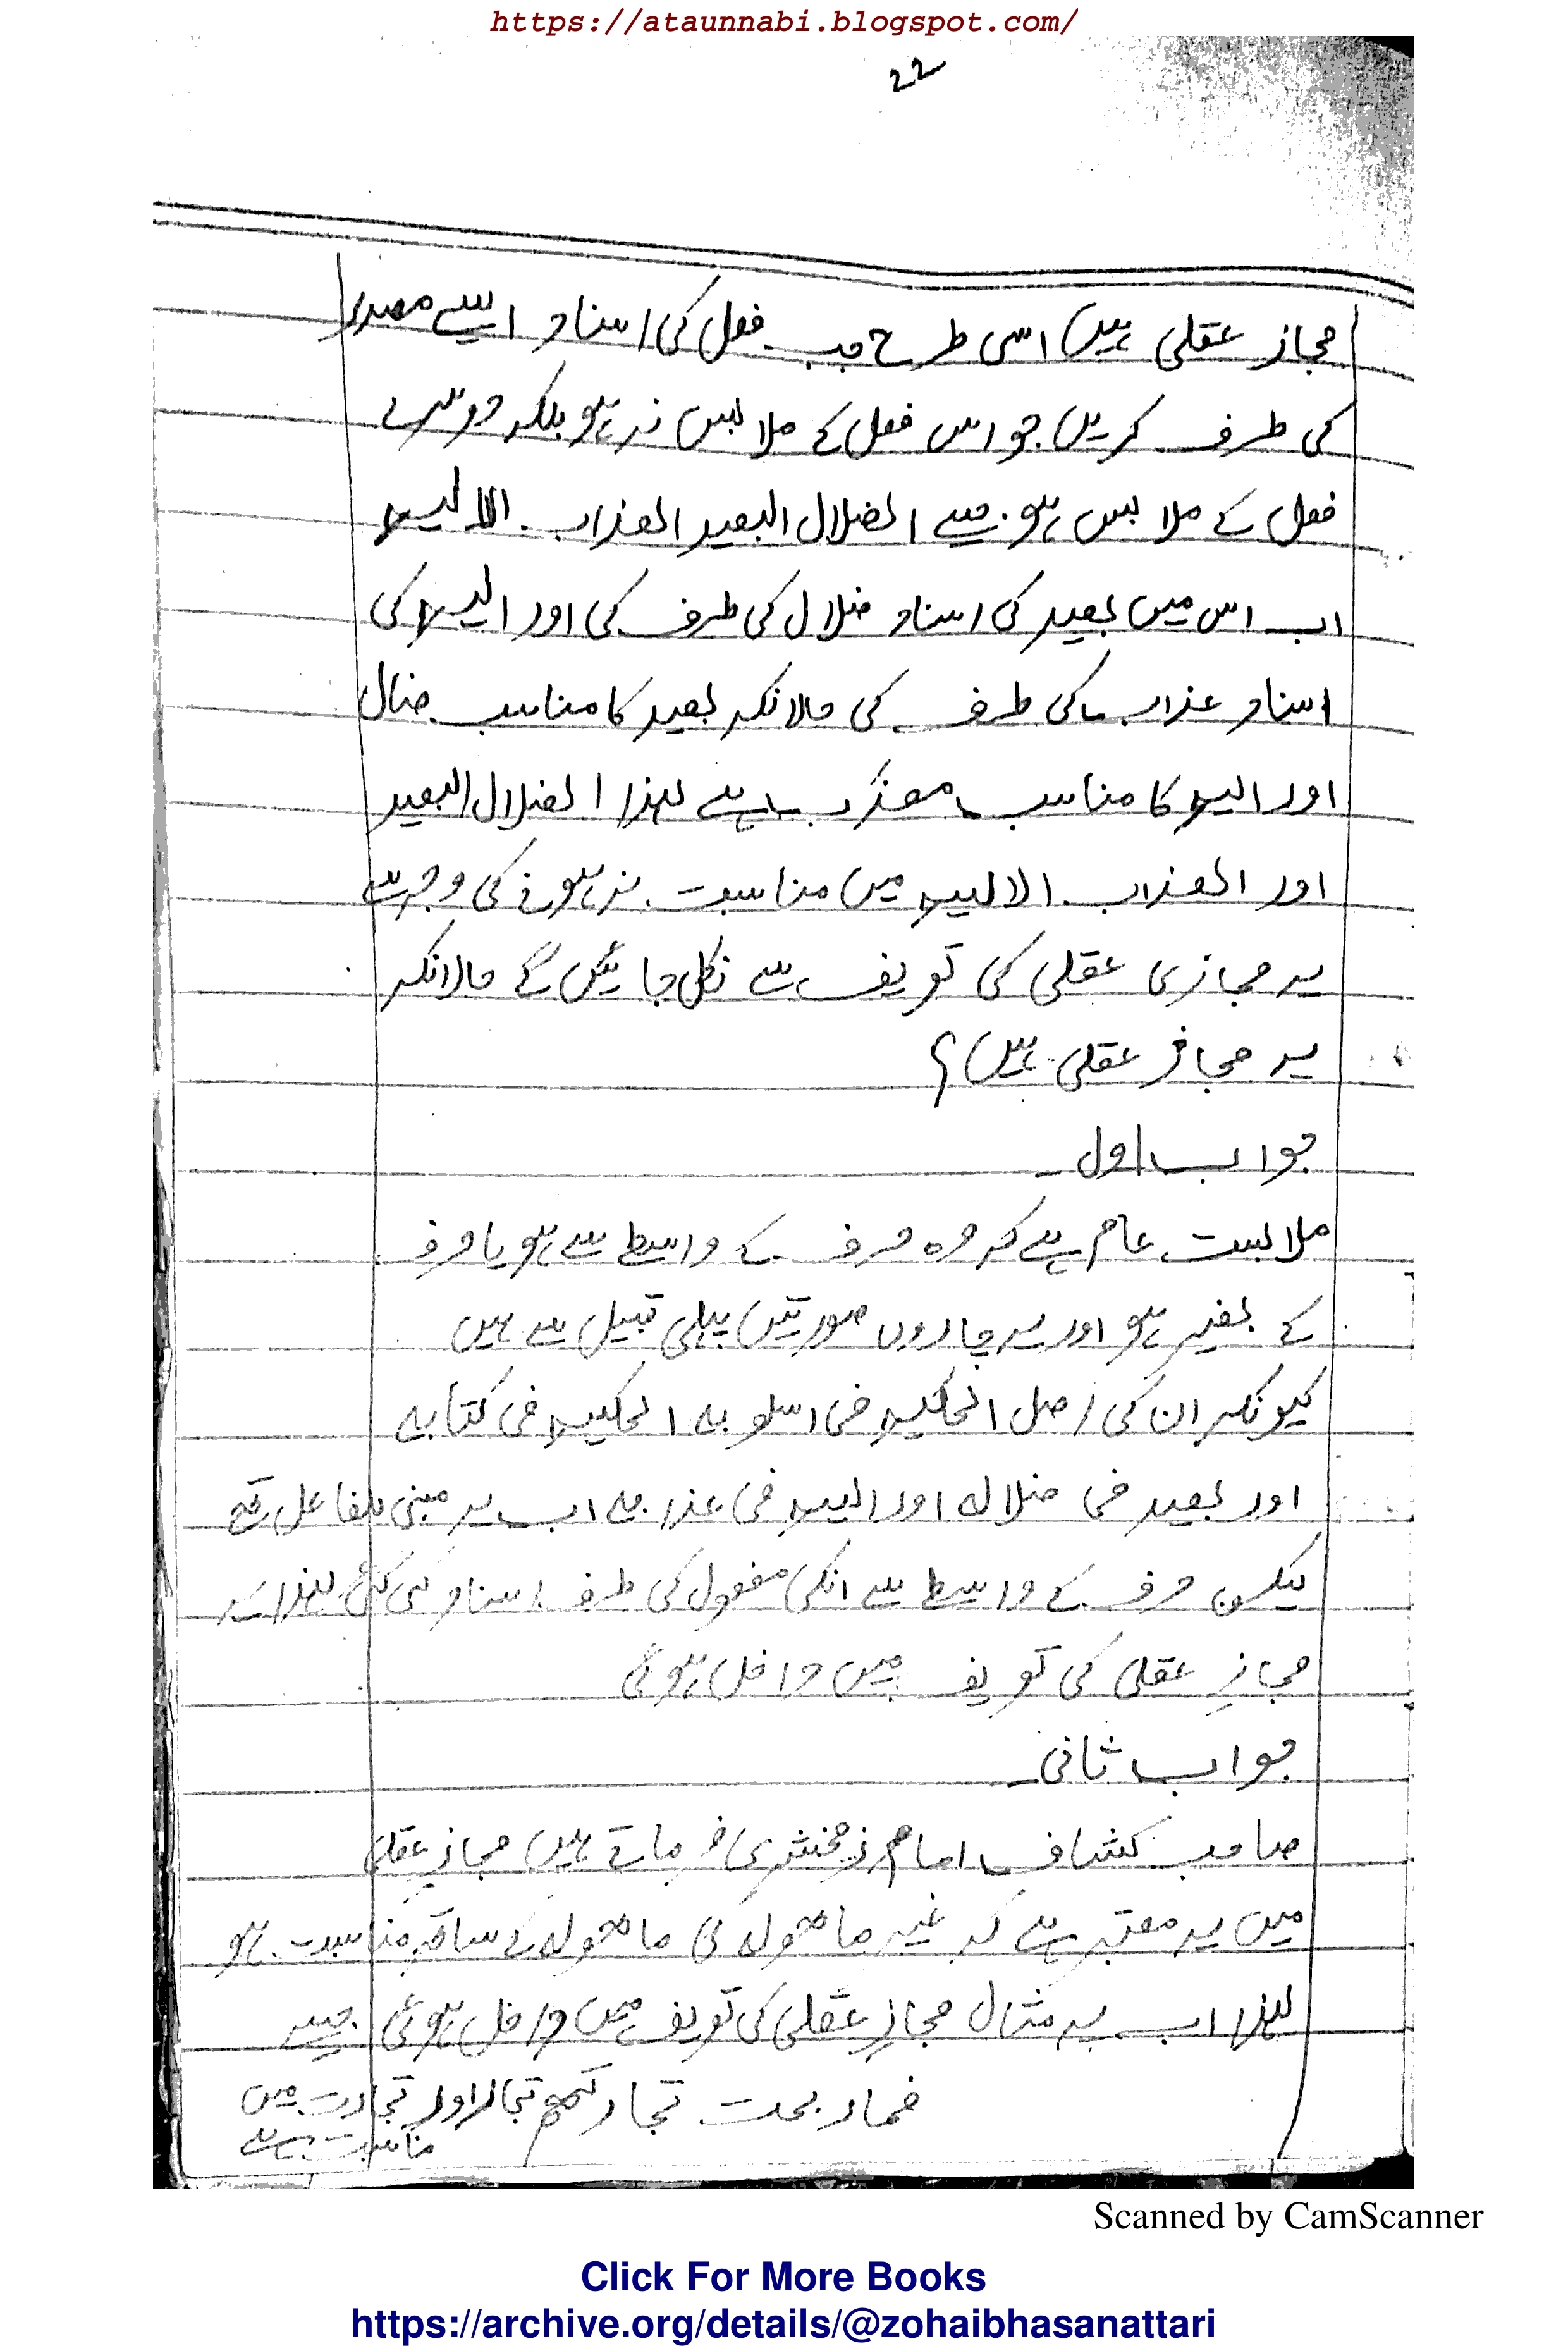 https://ataunnabi.blogspot.com/
22
مجاز عقلی ہیں اسی طرح جب فعل کی اسناد ایسے مصدر
کی طرف کریں جو اس فعل کے ملابس نہ ہو بلکہ دوسرے
فعل کے ملابس ہو جیسے الضلال البعید العذاب الالیم
اب اس میں بعید کی اسناد ضلال کی طرف کی اور الیم کی
اسناد عذاب کی طرف کی حالانکہ بعید کا مناسب ضال
اور الیم کا مناسب معذب ہے لہذا الضلال البعید
اور العذاب الالیم میں مناسبت نہ ہونے کی وجہ سے
یہ مجازی عقلی کی تعریف سے نکل جائیں گے حالانکہ
یہ مجاز عقلی ہیں؟
جواب اول۔
ملابست عام ہے کہ وہ حرف کے واسطے سے ہو یا حرف
کے بغیر ہو اور یہ چاروں صورتیں پہلی قبیل سے ہیں
کیونکہ ان کی اصل الحکیم فی اسلوبہ الحکیم فی کتابہ
اور بعید فی ضلالہ اور الیم فی عذابہ اب یہ مبنی للفاعل تھے
لیکن حرف کے واسطے سے انکی مفعول کی طرف اسناد کی گئی لہذا یہ
مجازِ عقلی کی تعریف میں داخل ہوئی
جواب ثانی۔
صاحب کشاف امام زمخشری فرماتے ہیں مجاز عقلی
میں یہ معتبر ہے کہ غیر ماھولہ کی ماھولہ کے ساتھ مناسبت ہو
لہذا اب یہ مثال مجازِ عقلی کی تعریف میں داخل ہوئی جیسے
فمار بحت تجارتھم تجار اور تجارت میں
مناسبت ہے
Scanned by CamScanner
Click For More Books
https://archive.org/details/@zohaibhasanattari